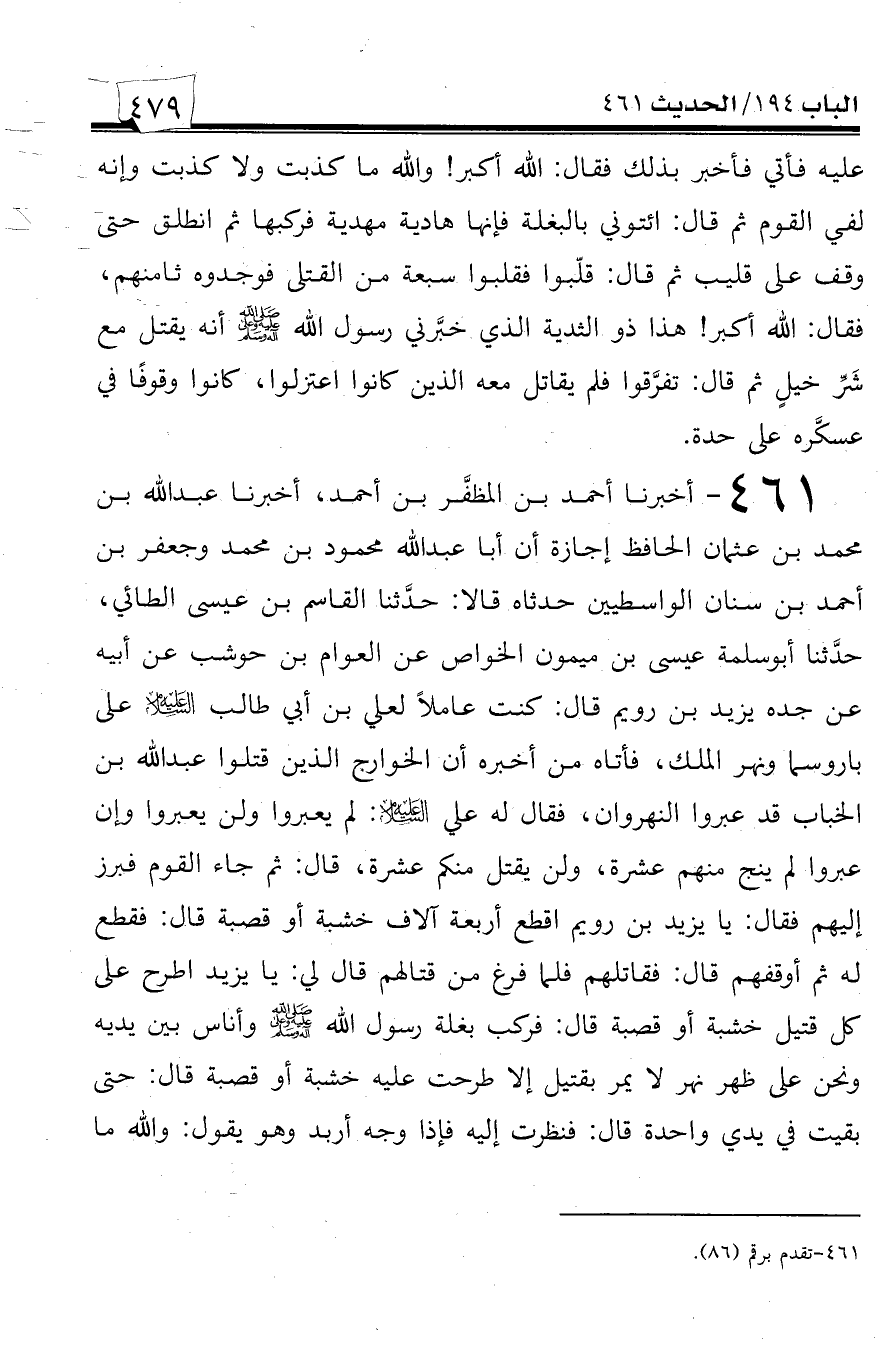 الباب ١٩٤/الحديث ٤٦١
٤٧٩
عليه فأتي فأخبر بذلك فقال: الله أكبر! والله ما كذبت ولا كذبت وإنه
لفي القوم ثم قال: ائتوني بالبغلة فإنها هادية مهدية فركبها ثم انطلق حتى
وقف على قليب ثم قال: قلّبوا فقلبوا سبعة من القتلى فوجدوه ثامنهم،
فقال: الله أكبر! هذا ذو الثدية الذي خبَّرني رسول الله ﷺ أنه يقتل مع
شَرِّ خيلٍ ثم قال: تفرَّقوا فلم يقاتل معه الذين كانوا اعتزلوا، كانوا وقوفًا في
عسكَّره على حدة.
٤٦١- أخبرنا أحمد بن المظفَّر بن أحمد، أخبرنا عبدالله بن
محمد بن عثمان الحافظ إجازة أن أبا عبدالله محمود بن محمد وجعفر بن
أحمد بن سنان الواسطيين حدثاه قالا: حدَّثنا القاسم بن عيسى الطائي،
حدَّثنا أبوسلمة عيسى بن ميمون الخواص عن العوام بن حوشب عن أبيه
عن جده يزيد بن رويم قال: كنت عاملاً لعلي بن أبي طالب عليه السلام على
باروسما ونهر الملك، فأتاه من أخبره أن الخوارج الذين قتلوا عبدالله بن
الخباب قد عبروا النهروان، فقال له علي عليه السلام: لم يعبروا ولن يعبروا وإن
عبروا لم ينج منهم عشرة، ولن يقتل منكم عشرة، قال: ثم جاء القوم فبرز
إليهم فقال: يا يزيد بن رويم اقطع أربعة آلاف خشبة أو قصبة قال: فقطع
له ثم أوقفهم قال: فقاتلهم فلما فرغ من قتالهم قال لي: يا يزيد اطرح على
كل قتيل خشبة أو قصبة قال: فركب بغلة رسول الله ﷺ وأناس بين يديه
ونحن على ظهر نهر لا يمر بقتيل إلا طرحت عليه خشبة أو قصبة قال: حتى
بقيت في يدي واحدة قال: فنظرت إليه فإذا وجه أربد وهو يقول: والله ما
٤٦١-تقدم برقم (٨٦).